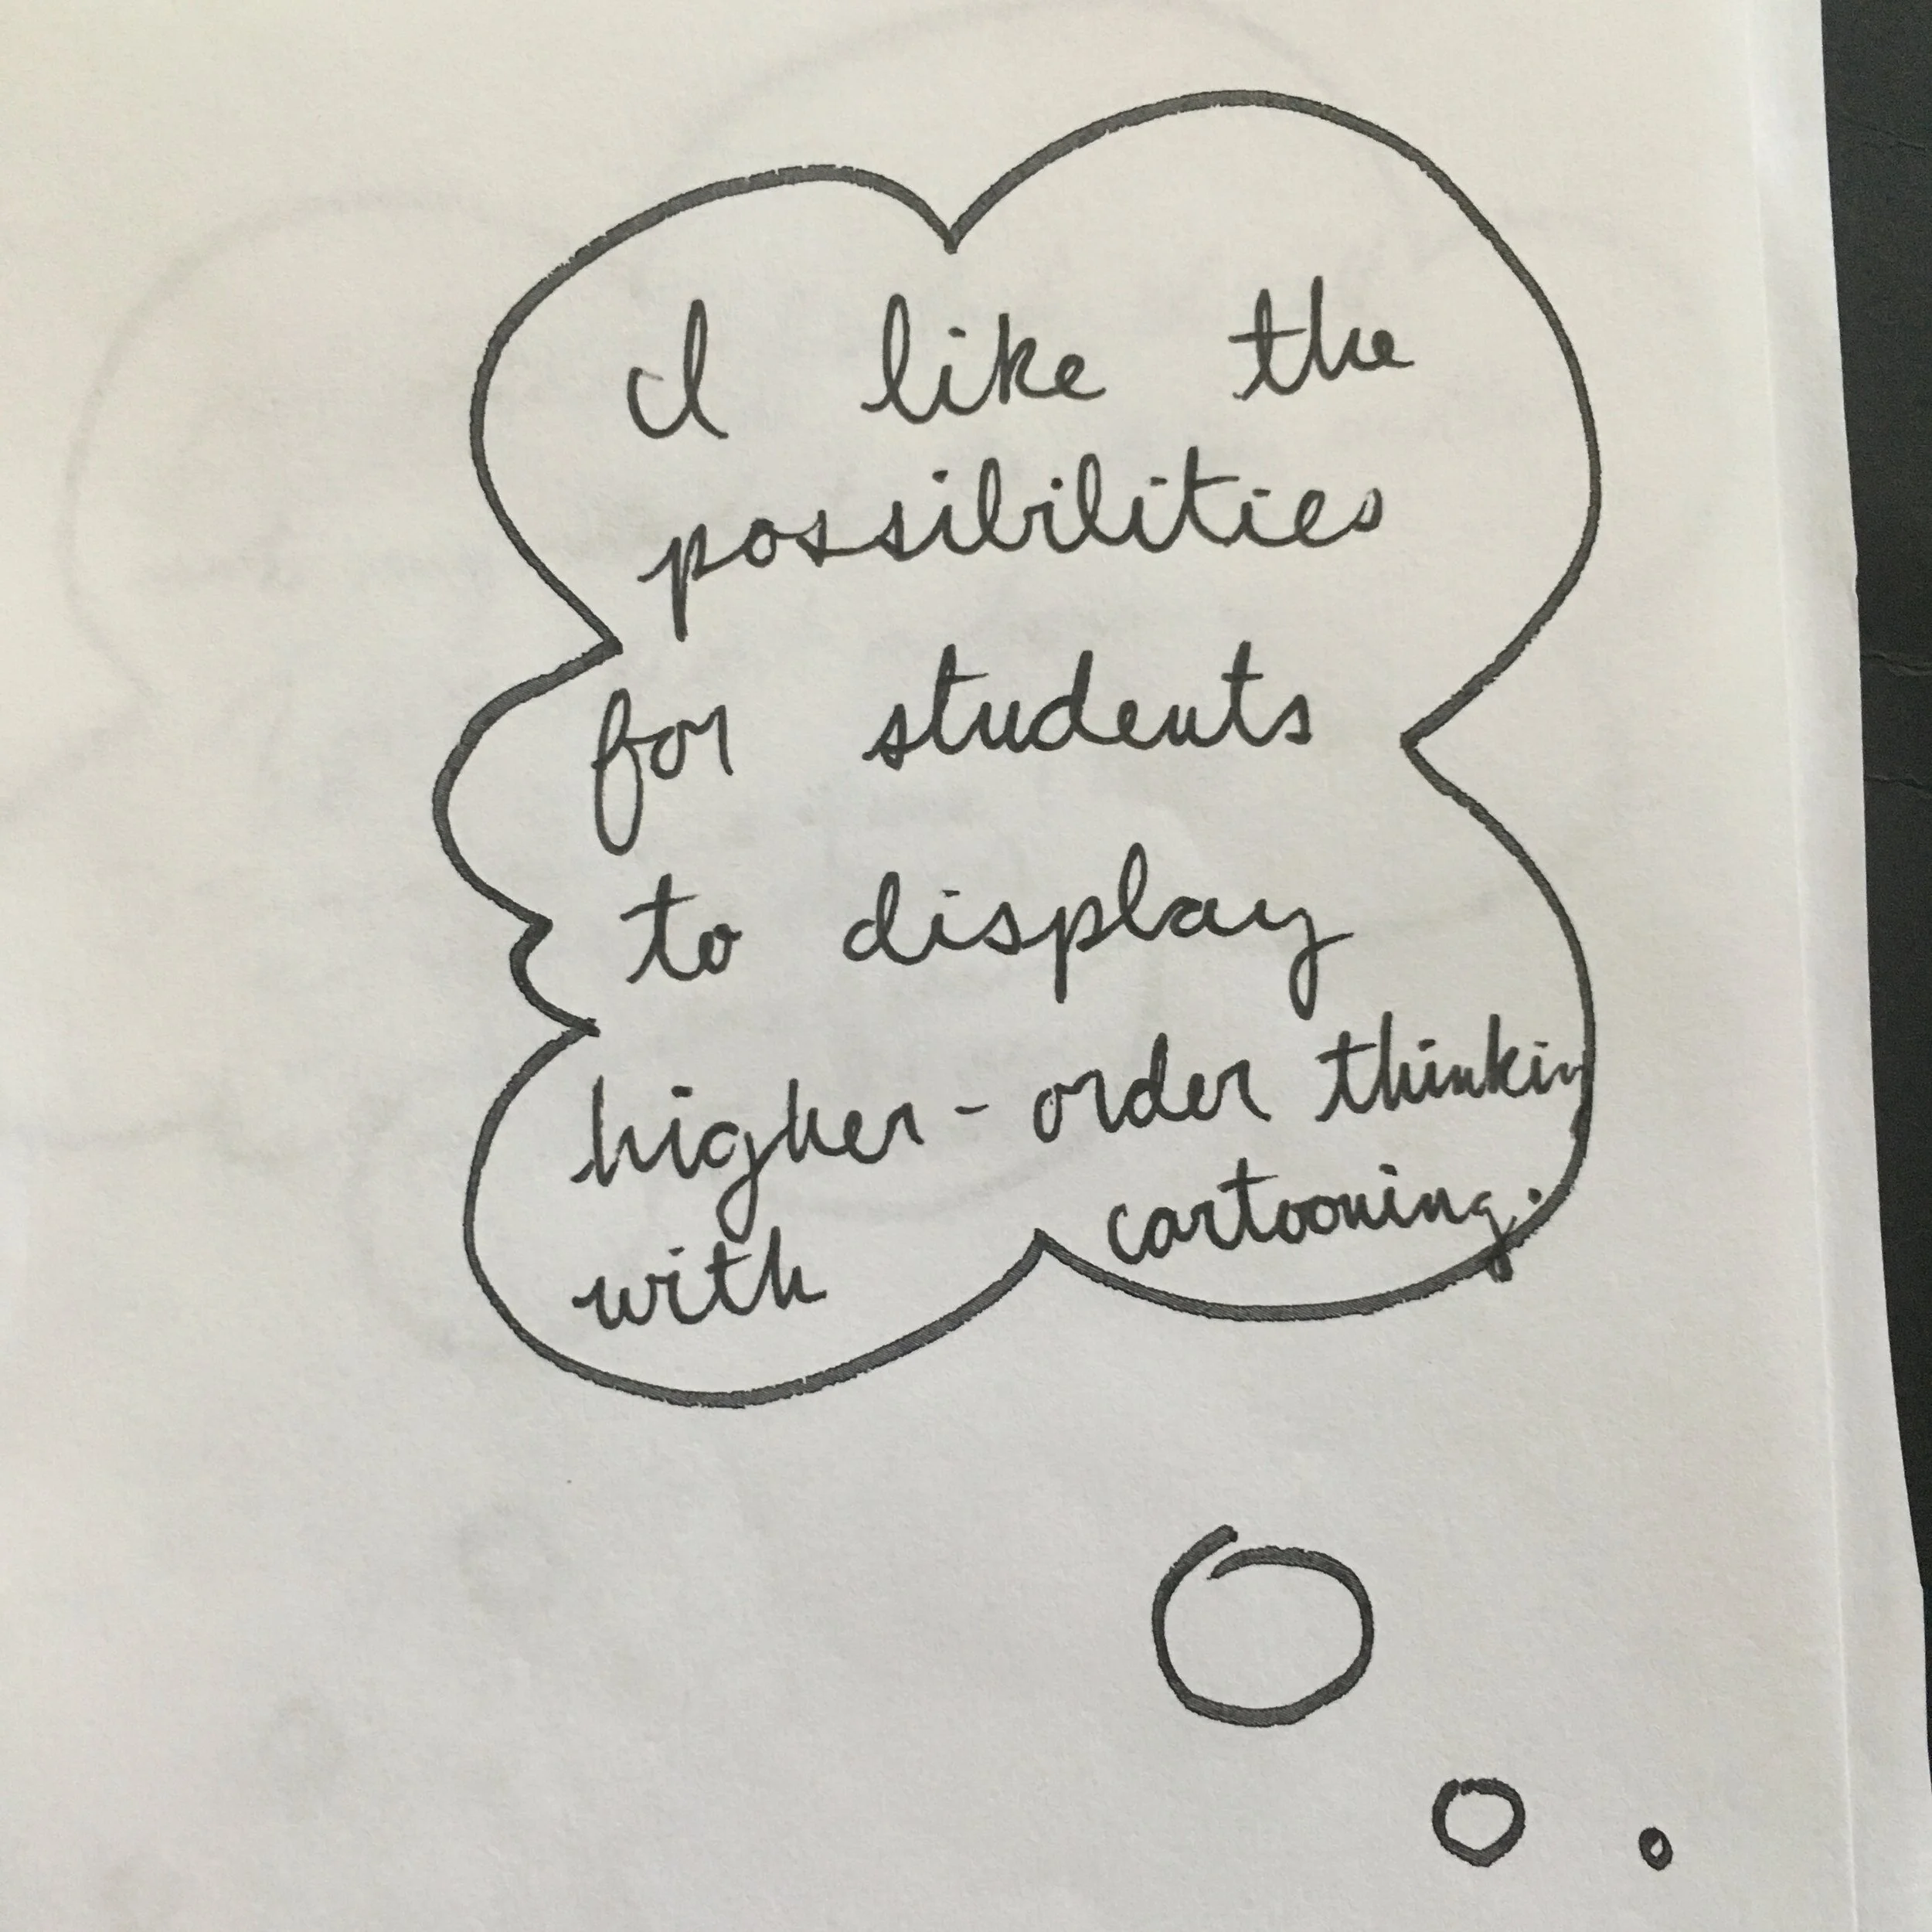 I like the
possibilities
for students
to display
higher-order thinking
with cartooning.